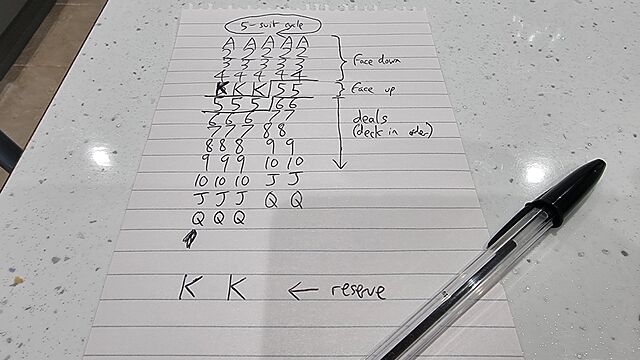 5-suit cycle
A A A A A
2 2 2 2 2
3 3 3 3 3
4 4 4 4 4
Face down
K K K 5 5
Face up
5 5 5 6 6
6 6 6 7 7
7 7 7 8 8
8 8 8 9 9
9 9 9 10 10
10 10 10 J J
J J J Q Q
Q Q Q
deals
(deck in order)
K K ← reserve